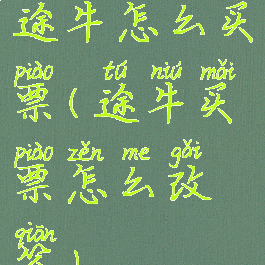 途牛怎么买
piào tú niú mǎi
票(途牛买
piào zěn me gǎi
票怎么改
qiān
签)